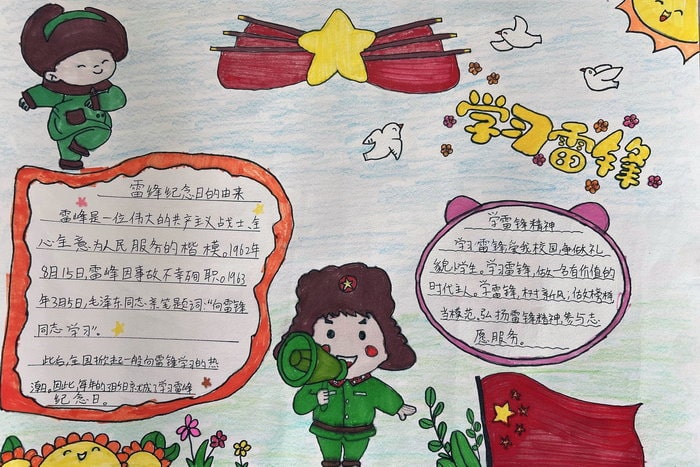 学习雷锋
雷锋纪念日的由来
雷峰是一位伟大的共产主义战士,全
心全意为人民服务的楷模。1962年
8月15日,雷峰因事故不幸殉职。1963
年3月5日,毛泽东同志亲笔题词:“向雷锋
同志学习”。
此后,全国掀起一般向雷锋学习的热
潮。因此,每年的3月5日成了学习雷锋
纪念日。
学雷锋精神
学习雷锋,爱我校园,争做礼
貌小学生。学习雷锋,做一名有价值的
时代主人。学雷锋,树新风,做榜样
当模范,弘扬雷锋精神,参与志
愿服务。